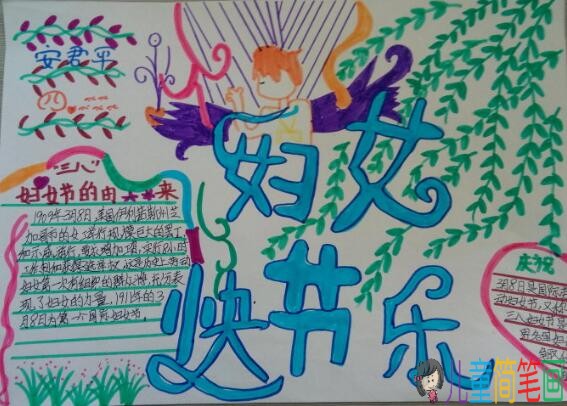 安君平
妇女
快节乐
"三八"
妇女节的由来
1909年3月8日,美国伊利诺斯州芝
加哥市的女工举行规模巨大的罢工
和示威游行,要求增加工资,实行8小时
工作制和获得选举权。这是历史上劳动
妇女第一次有组织的群众
现了妇女的力量。1911年的3
月8日为第一个国际妇女节。
庆祝
3月8日是国际
动妇女节,又
三八妇女节是
界各国妇
儿童简笔画